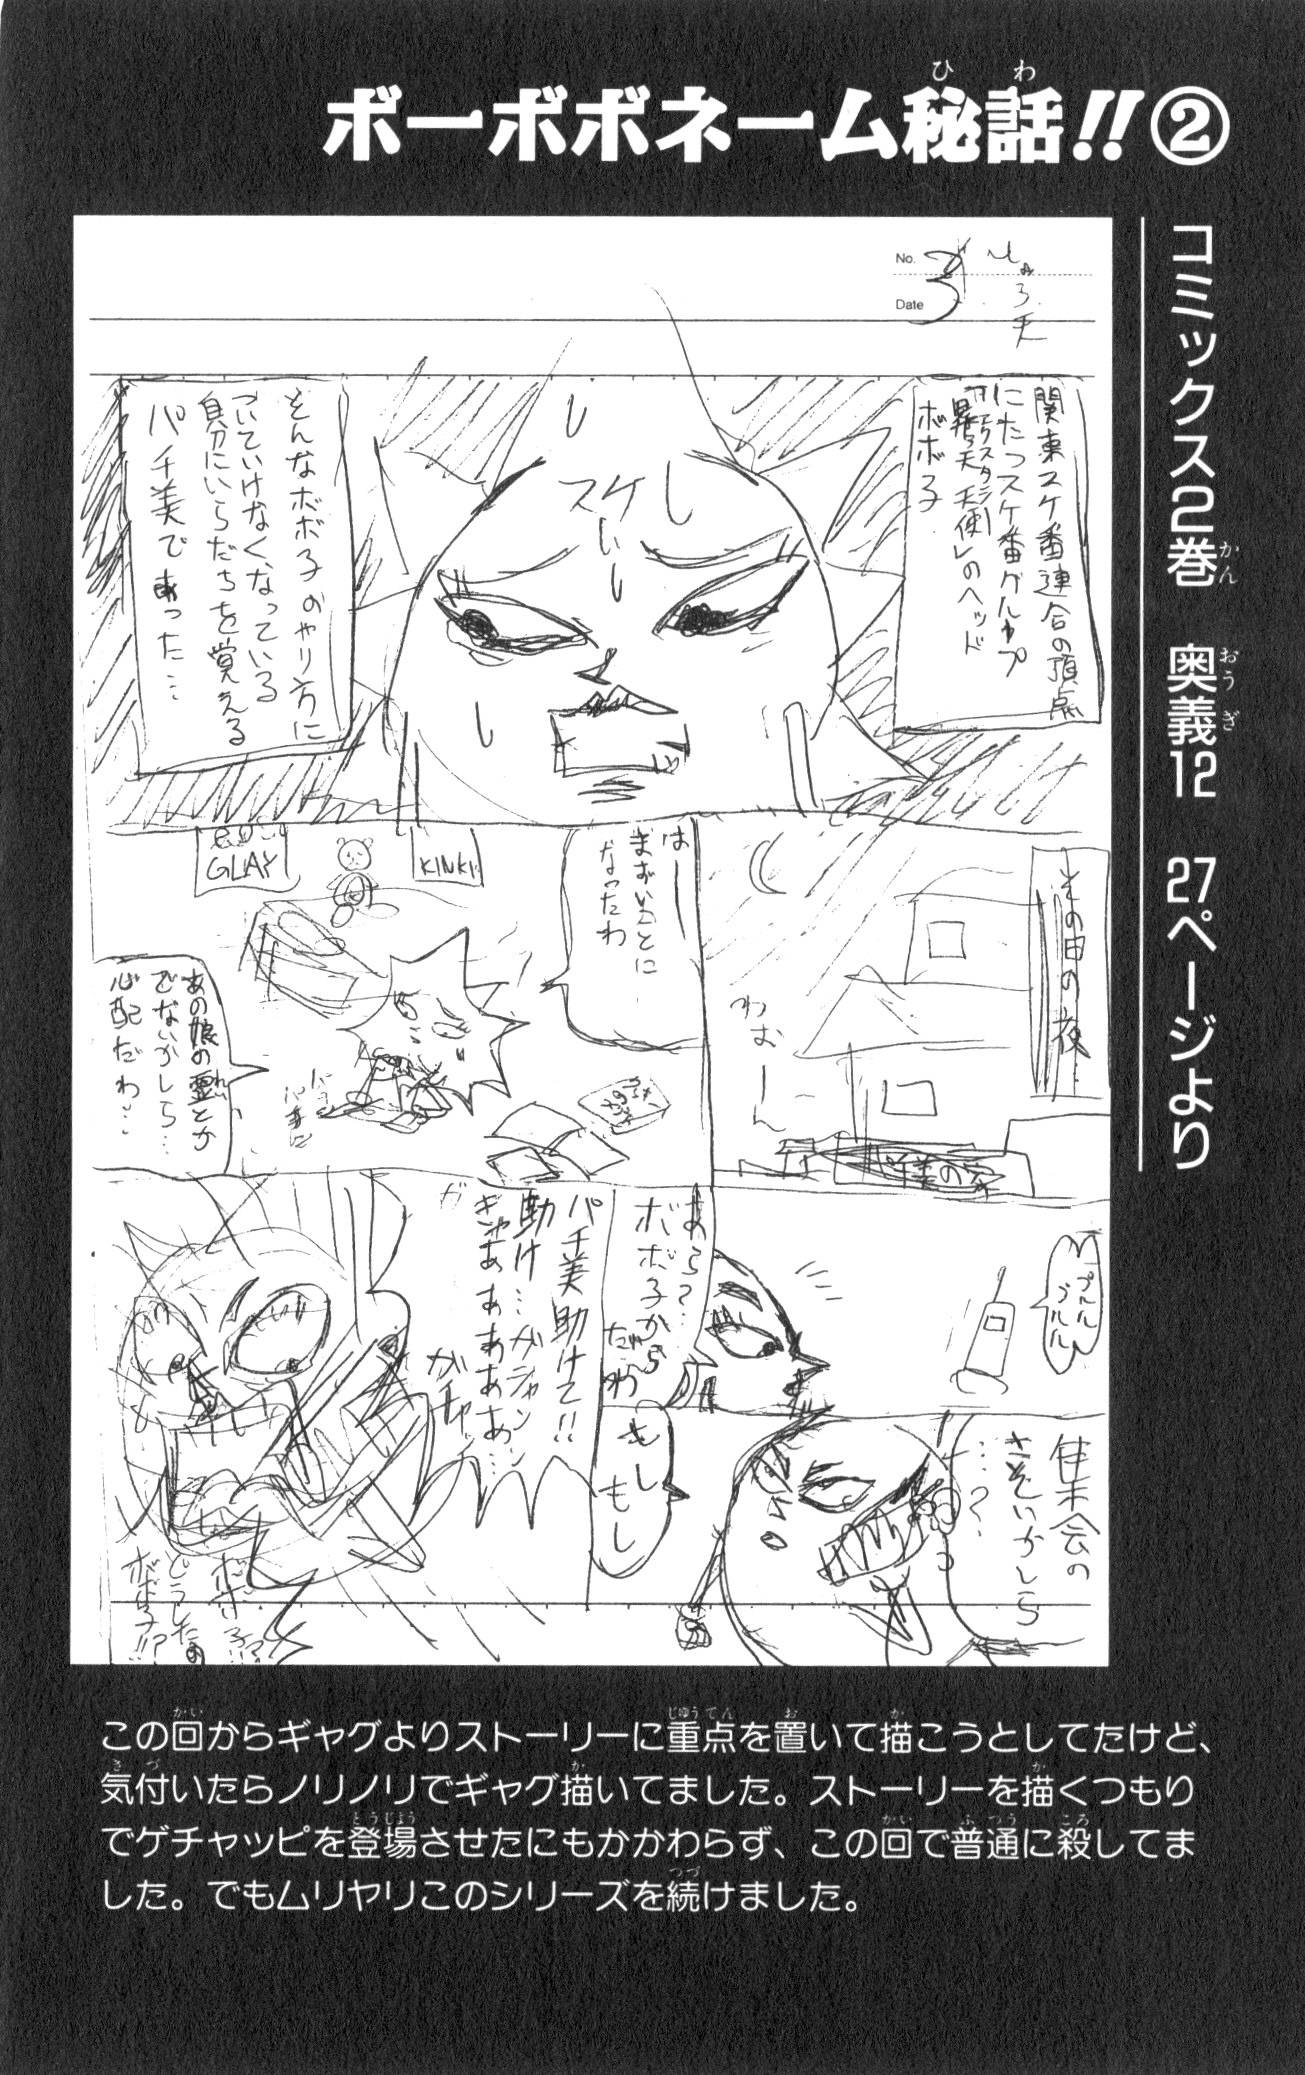 ボーボボネーム秘話!!②
コミックス2巻 奥義12 27ページより
No. 3
Date
関東スケ番連合の頂点
にたつスケ番グループ
ボボ子
スケ
そんなボボ子のやり方に
ついていけなくなっている
自分にいらだちを覚える
パチ美であった…
その日の夜…
わおーん
はー
まずいことに
なったわ
KINKI
GLAY
あの娘の霊とか
でないかしら…
心配だわ…
プルル
プルル
あら?…
ボボ子から
だわ
集会の
さそいかしら
…?
もし
もし
パチ美助けて!!
助け…ガシャン…
ぎゃあああああ…
ガチャ
どうしたの
ボボ子!!
この回からギャグよりストーリーに重点を置いて描こうとしてたけど、
気付いたらノリノリでギャグ描いてました。ストーリーを描くつもり
でゲチャッピを登場させたにもかかわらず、この回で普通に殺してま
した。でもムリヤリこのシリーズを続けました。